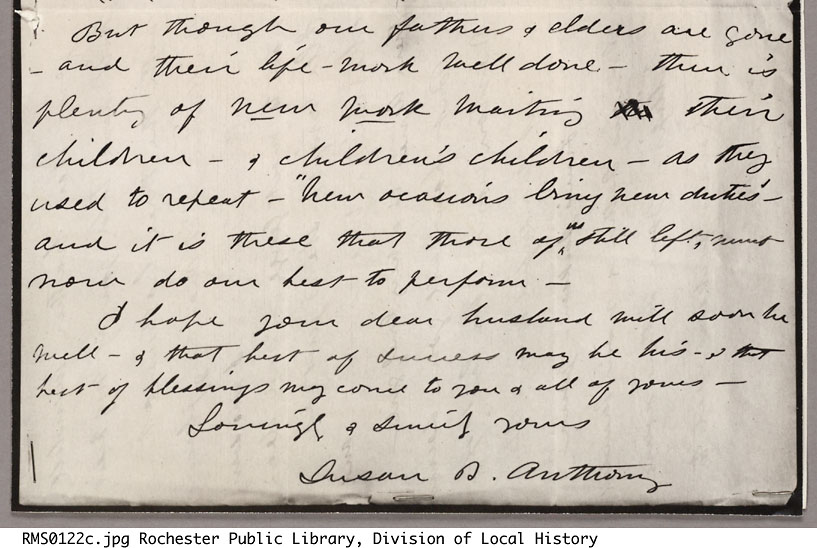 But though our fathers & elders are gone
- and their life-work well done - there is
plenty of new work waiting their
children - & children's children - as they
used to repeat - "New ocasions bring new duties" -
and it is these that those of us still left, must
now do our best to perform -
I hope your dear husband will soon be
well - & that best of success may be his - & that
best of blessings may come to you & all of yours -
Lovingly & Sincerely yours
Susan B. Anthony
RMS0122c.jpg Rochester Public Library, Division of Local History